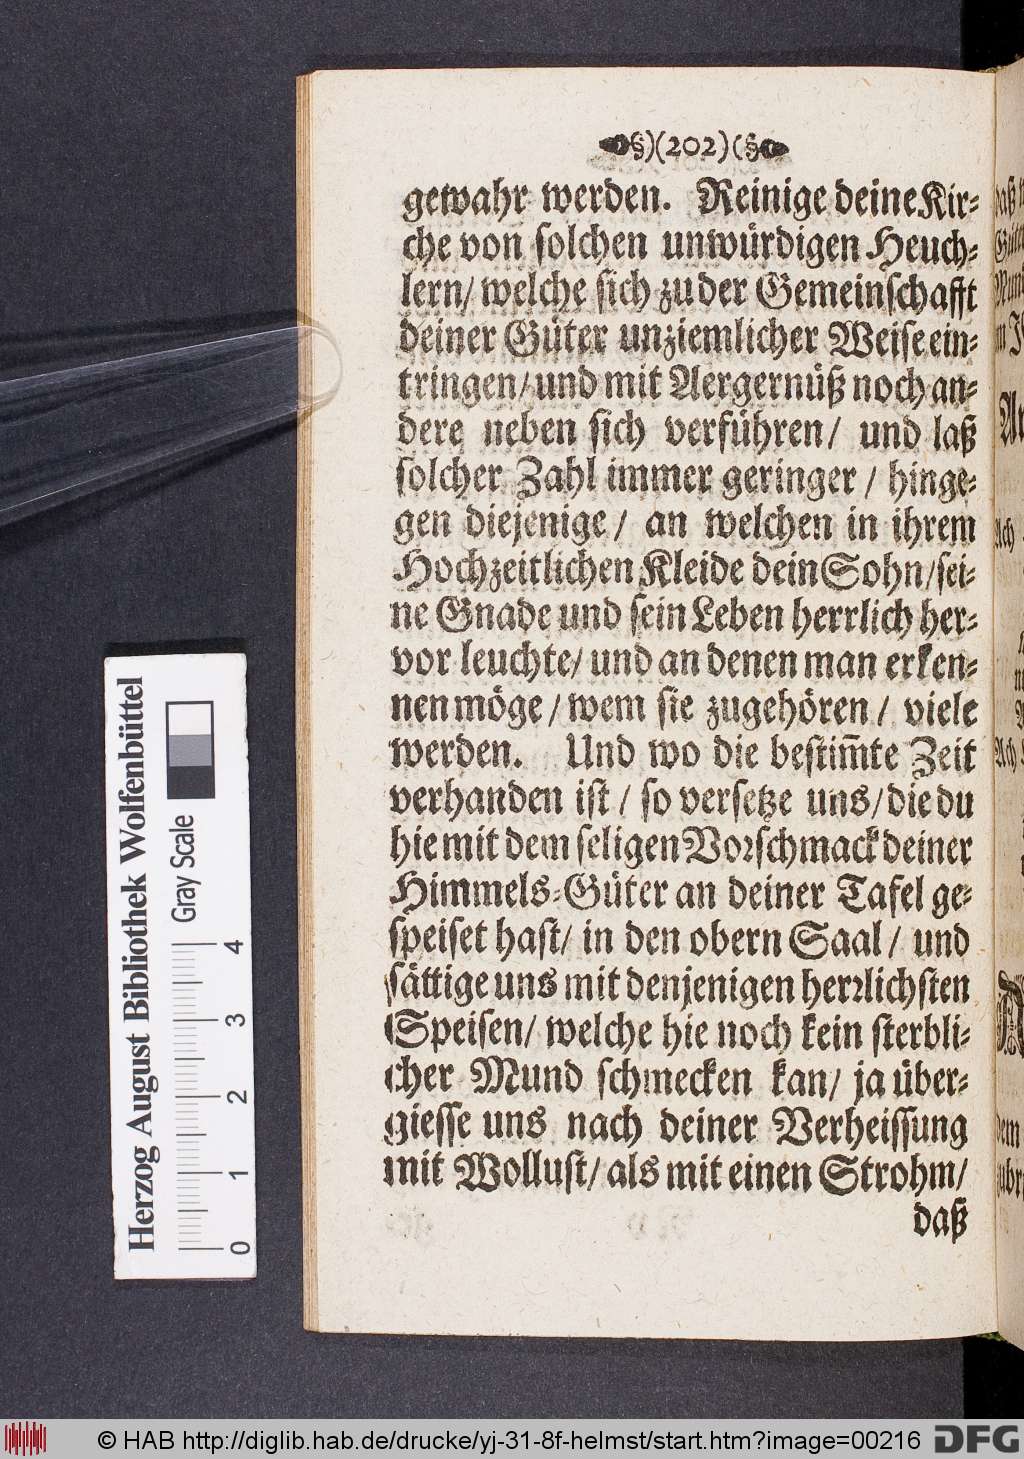 §)(202)(§
gewahr werden. Reinige deine Kir-
che von solchen unwürdigen Heuch-
lern/ welche sich zu der Gemeinschafft
deiner Güter unziemlicher Weise ein-
tringen/ und mit Aergernüß noch an-
dere neben sich verführen/ und laß
solcher Zahl immer geringer / hinge-
gen diejenige / an welchen in ihrem
Hochzeitlichen Kleide dein Sohn/ sei-
ne Gnade und sein Leben herrlich her-
vor leuchte/ und an denen man erken-
nen möge / wem sie zugehören / viele
werden. Und wo die bestim̅te Zeit
verhanden ist / so versetze uns/ die du
hie mit dem seligen Vorschmack deiner
Himmels-Güter an deiner Tafel ge-
speiset hast/ in den obern Saal / und
sättige uns mit denjenigen herrlichsten
Speisen/ welche hie noch kein sterbli-
cher Mund schmecken kan/ ja über-
giesse uns nach deiner Verheissung
mit Wollust/ als mit einen Strohm/
daß
Herzog August Bibliothek Wolfenbüttel
Gray Scale
0 1 2 3 4
© HAB http://diglib.hab.de/drucke/yj-31-8f-helmst/start.htm?image=00216
DFG